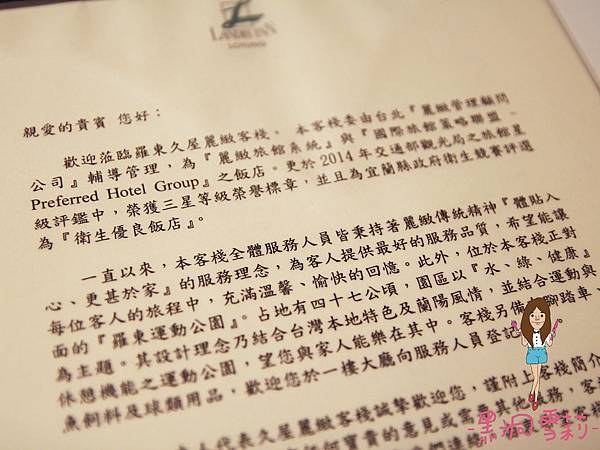 LANDIS INN
LOTUNG
親愛的貴賓 您好：
歡迎蒞臨羅東久屋麗緻客棧。 本客棧委由台北『麗緻管理顧問
公司』輔導管理，為『麗緻旅館系統』與『國際旅館策略聯盟 –
Preferred Hotel Group』之飯店。更於2014年交通部觀光局之旅館星
級評鑑中，榮獲三星等級榮譽標章，並且為宜蘭縣政府衛生競賽評選
為『衛生優良飯店』。
一直以來，本客棧全體服務人員皆秉持著麗緻傳統精神『體貼入
心、更甚於家』的服務理念，為客人提供最好的服務品質，希望能讓
每位客人的旅程中，充滿溫馨、愉快的回憶。此外，位於本客棧正對
面的『羅東運動公園』。占地有四十七公頃，園區以『水、綠、健康』
為主題。其設計理念乃結合台灣本地特色及蘭陽風情，並結合運動與
休憩機能之運動公園，望您與家人能樂在其中。客棧另備 腳踏車、
魚飼料及球類用品，歡迎您於一樓大廳向服務人員登記
人代表久屋麗緻客棧誠摯歡迎您，謹附上客棧簡介
何寶貴的意見或需要其他服務，客
黑皮雪莉